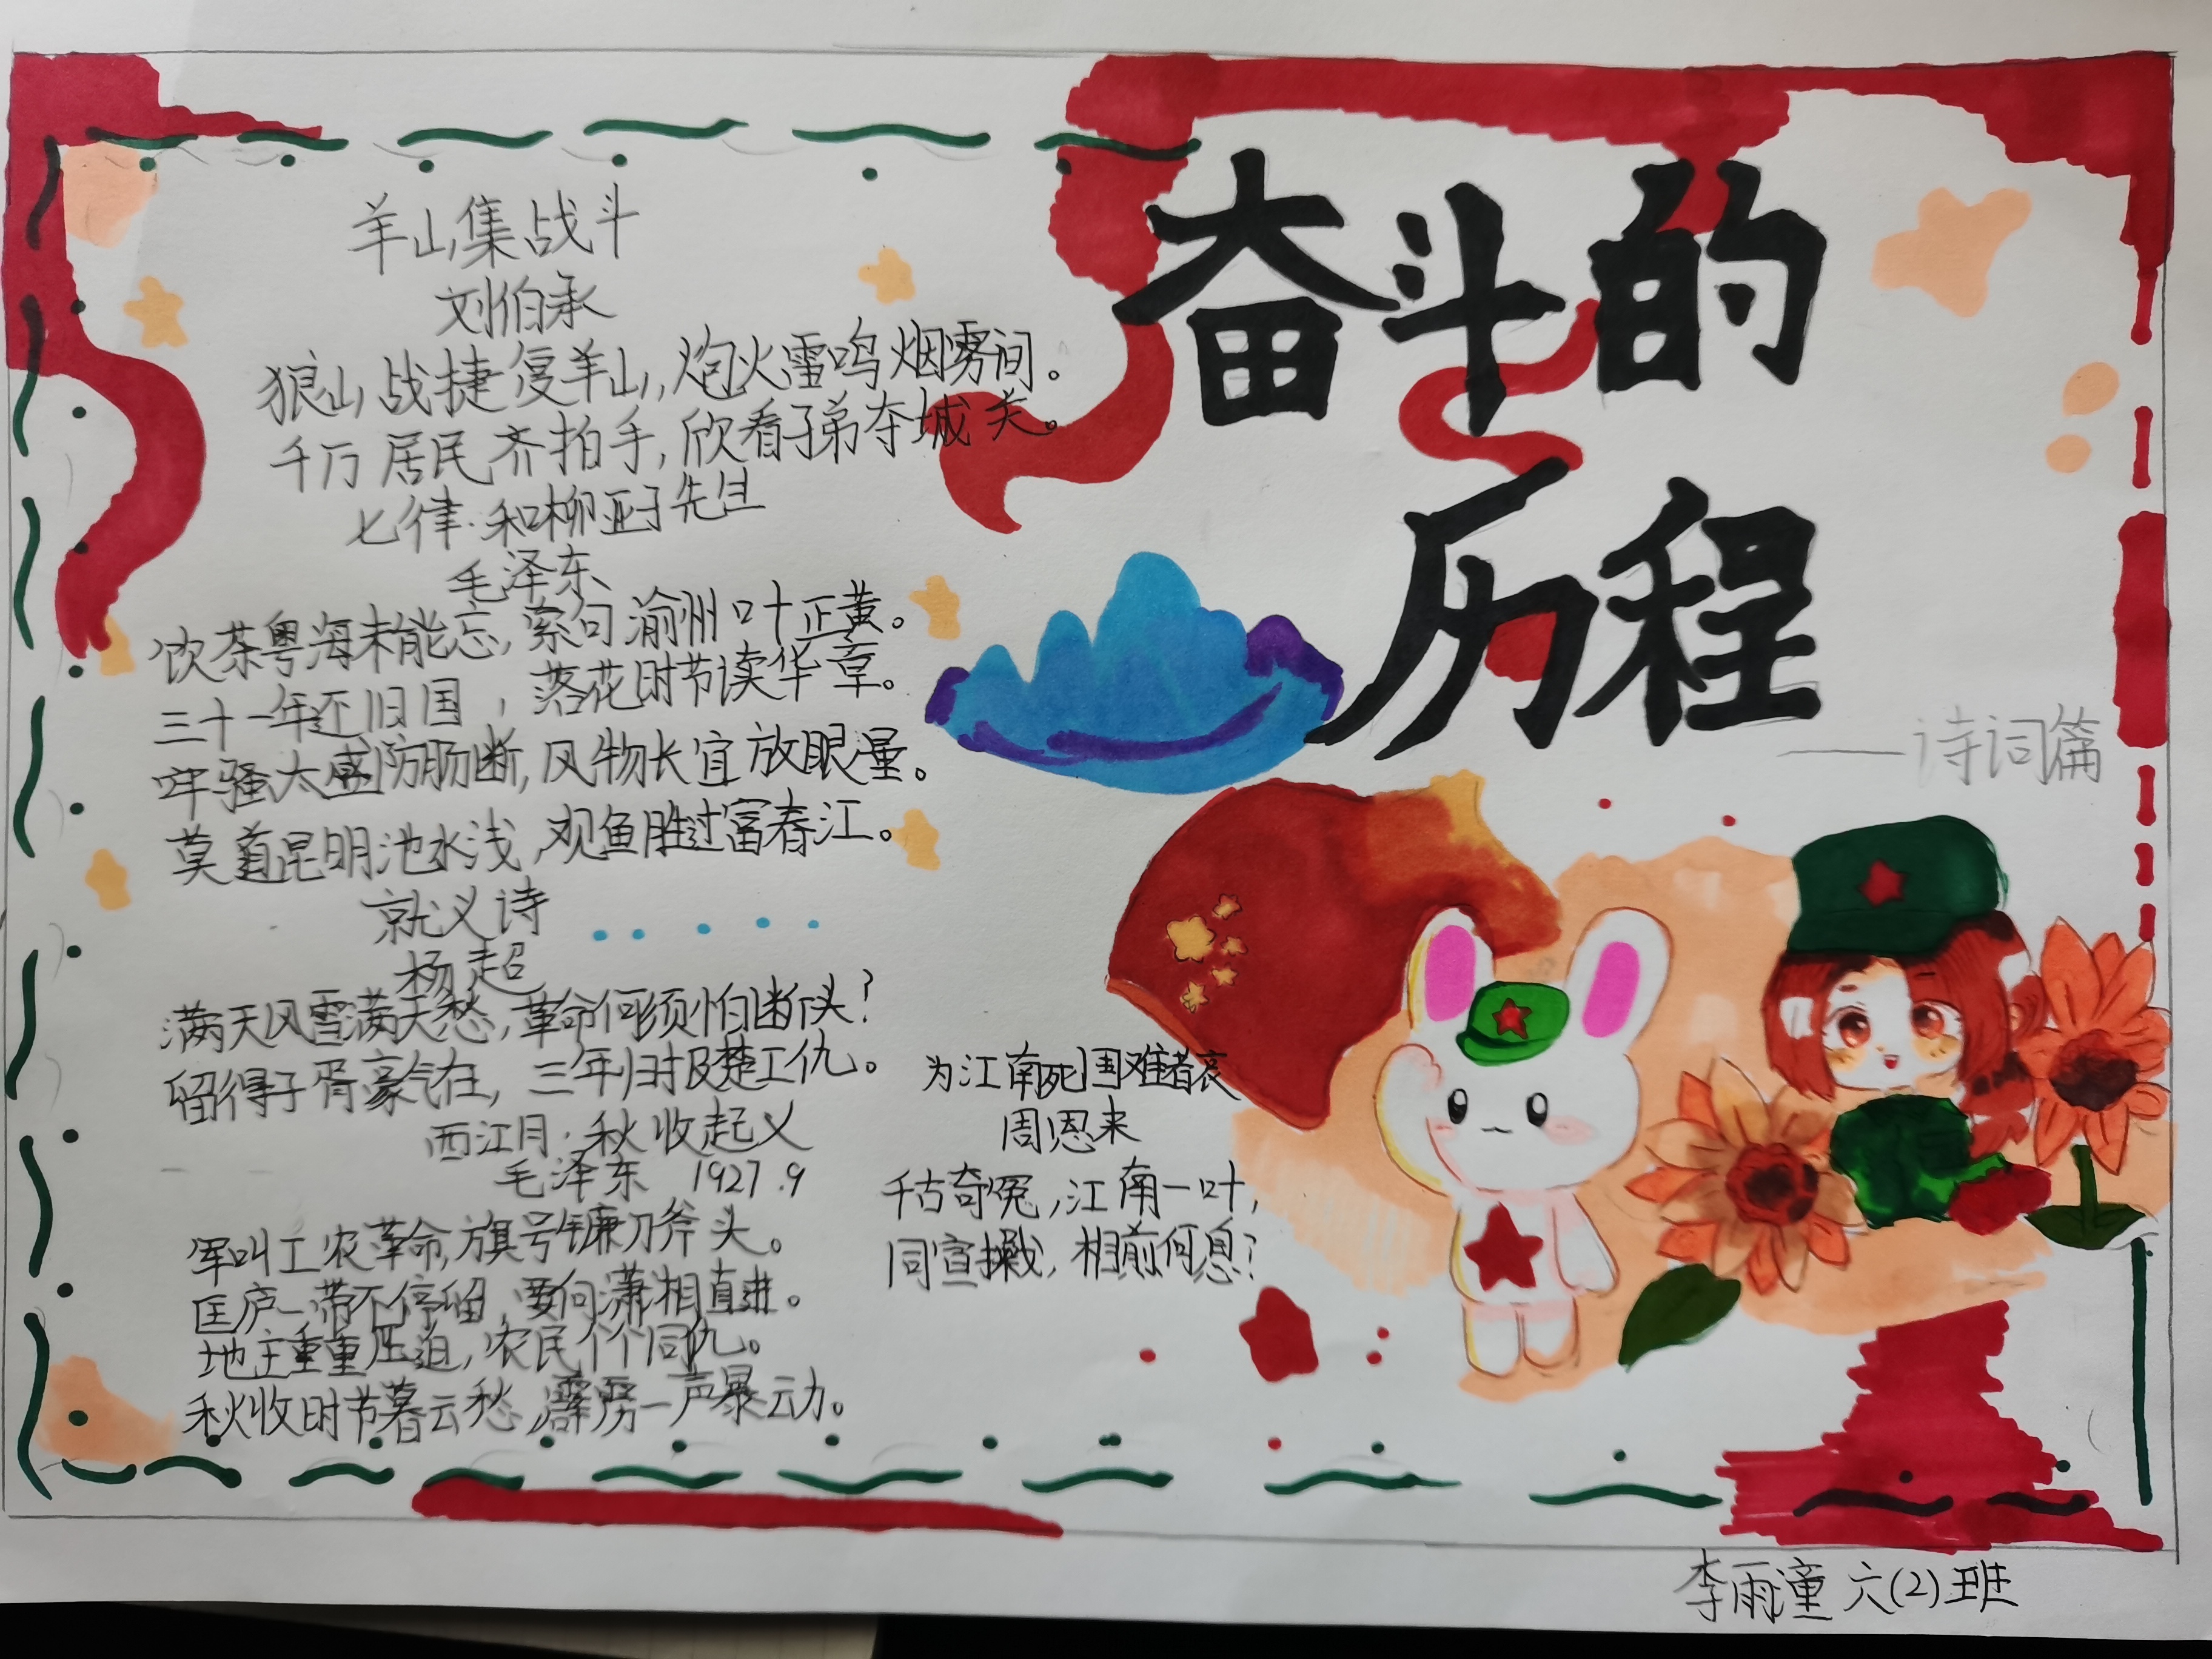 奋斗的
历程
——诗词篇
羊山集战斗
刘伯承
狼山战捷复羊山,炮火雷鸣烟雾间。
千万居民齐拍手,欣看子弟夺城关。
七律·和柳亚子先生
毛泽东
饮茶粤海未能忘,索句渝州叶正黄。
三十一年还旧国,落花时节读华章。
牢骚太盛防肠断,风物长宜放眼量。
莫道昆明池水浅,观鱼胜过富春江。
就义诗
杨超
满天风雪满天愁,革命何须怕断头?
留得子胥豪气在,三年归报楚王仇。
西江月·秋收起义
毛泽东 1927.9
军叫工农革命,旗号镰刀斧头。
匡庐一带不停留,要向潇湘直进。
地主重重压迫,农民个个同仇。
秋收时节暮云愁,霹雳一声暴动。
为江南死国难者哀
周恩来
千古奇冤,江南一叶,
同室操戈,相煎何急?
李雨潼 六(2)班